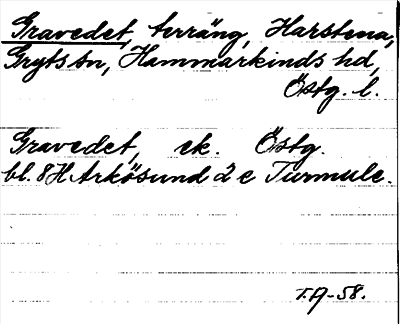 Gravedet, terräng, Harstena,
Gryts sn, Hammarkinds hd,
Östg. l.
Gravedet, ek. Östg.
bl. 8H Arkösund 2 c Turmule.
T.A-58.